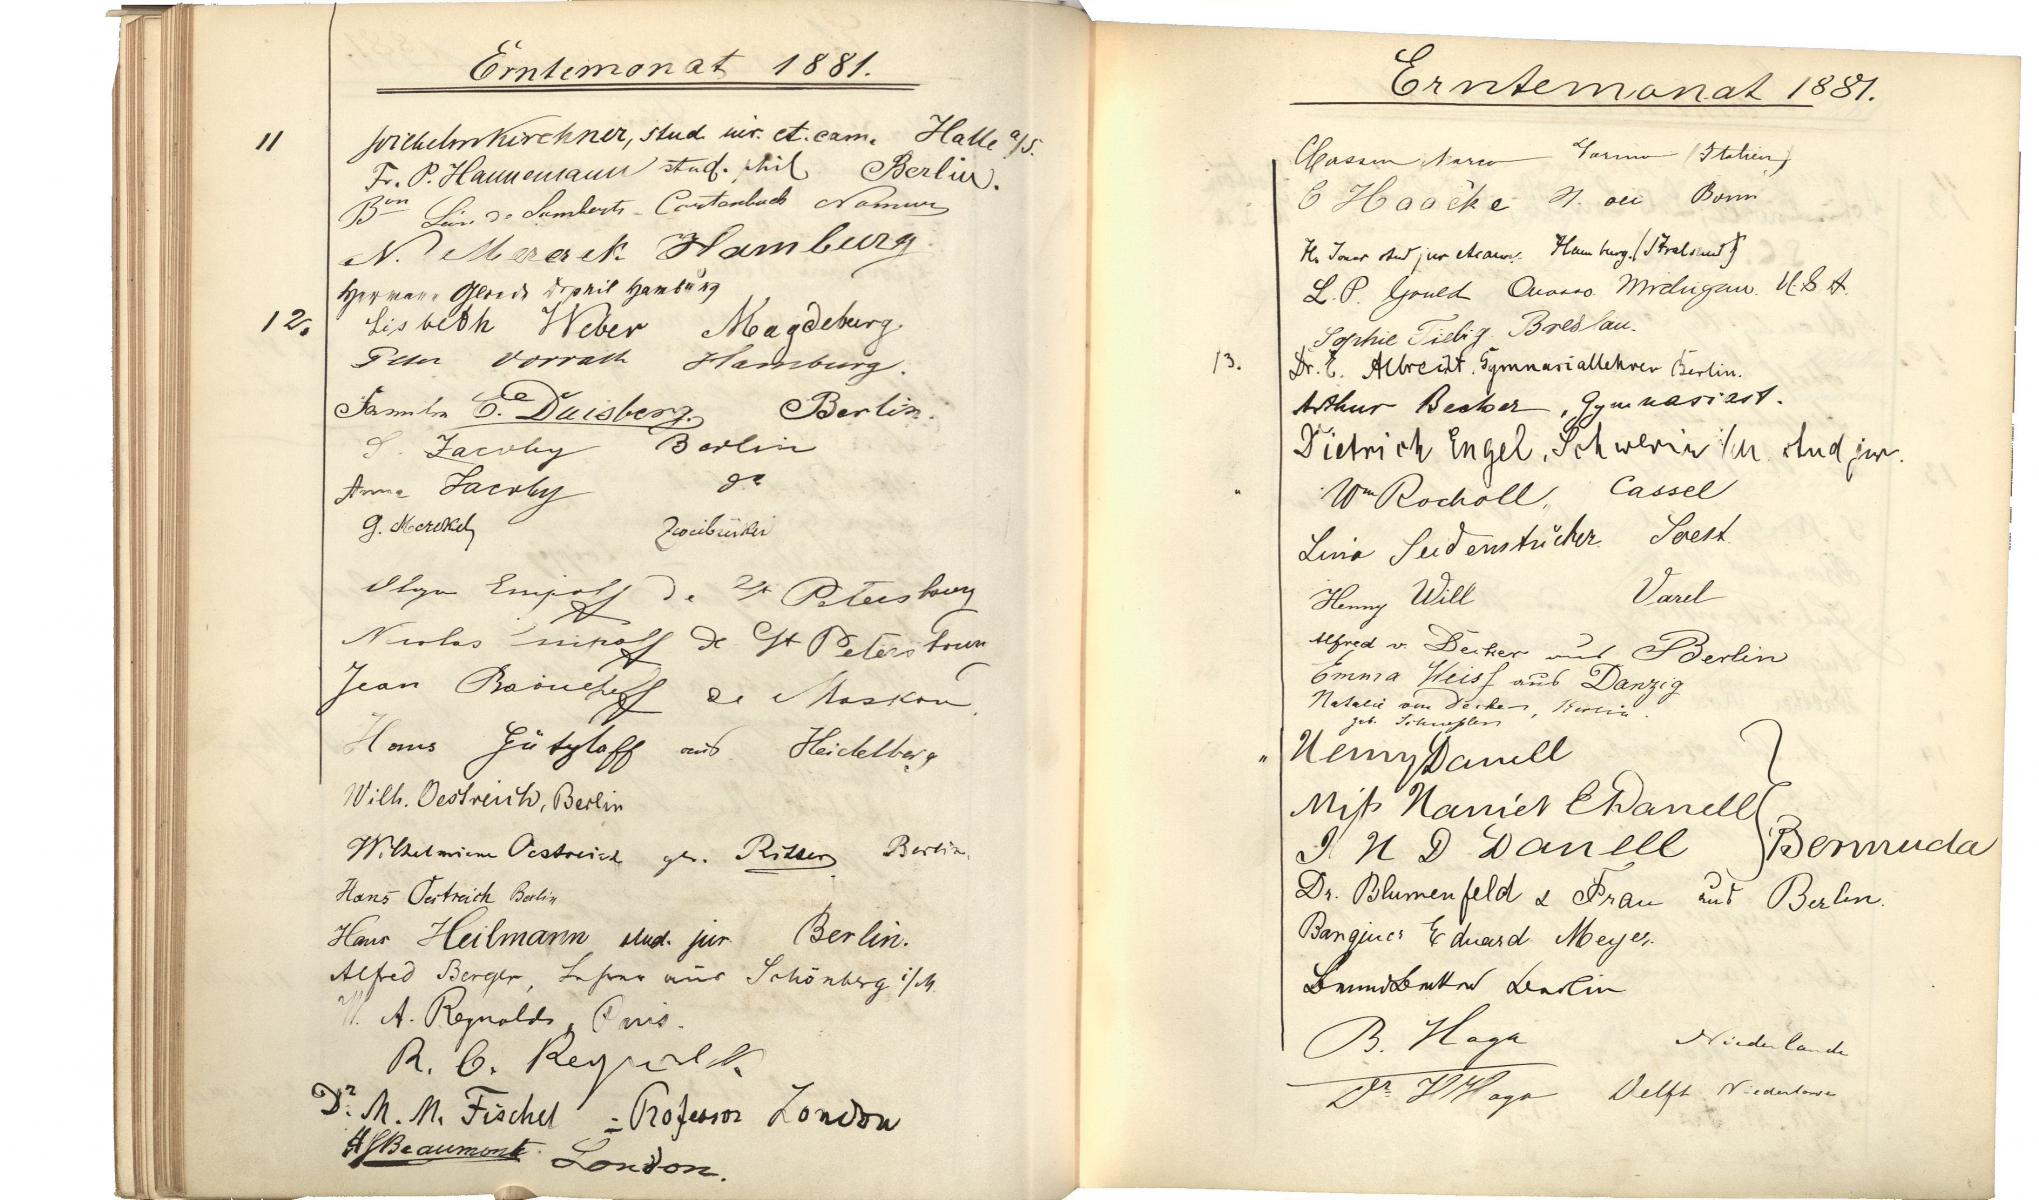 Erntemonat 1881.
11 Wilhelm Kirchner, stud. iur. et. cam. Halle a/S.
Fr. P. Hannemann stud. phil Berlin.
Bon de Namur
N. Merck Hamburg
Hermann dr phil Hamburg
12. Lisbeth Weber Magdeburg.
Peter Vorrath Hamburg.
Familie C. Duisberg. Berlin.
S. Jacoby Berlin
Anna Jacoby do
G. Merckel Zweibrücken
Olga de St Petersbourg
Nicolas de St Petersbourg
Jean de Moskou
Hans Gützlaff aus Heidelberg
Wilh. Oestreich, Berlin
Wilhelmine Oestreich geb. Ritter Berlin.
Hans Oestreich Berlin
Hans Heilmann stud. jur. Berlin.
Alfred Berger, aus Schönberg i/M.
W. A. Reynolds, Paris.
R. C. Reynolds.
Dr. M. M. Fischel - Professor London
Beaumont. London.
Erntemonat 1881.
Marco (Italien)
C Haacke Bonn
H. stud jur et cam. Hamburg. (Stralsund)
L. P. Gould Owosso Michigan. U. S. A.
Sophie Tiebig Breslau.
13. Dr. E. Albrecht, Gymnasiallehrer Berlin.
Arthur Becker, Gymnasiast.
Dietrich Engel, Schwerin i/M. stud jur.
" Wm Rocholl, Cassel
Lina Seidenstücker Soest
Henny Will Varel
Alfred v. Decker aus Berlin
Emma Weiss aus Danzig
Natalie von Decker, Berlin.
geb.
" Henry Darrell
Miss Harriet E Darrell
J H D Darrell } Bermuda
Dr. Blumenfeld & Frau aus Berlin.
Banquier Eduard Meyer.
Berlin
B. Haga Niederlande
Dr H Haga Delft Niederlande